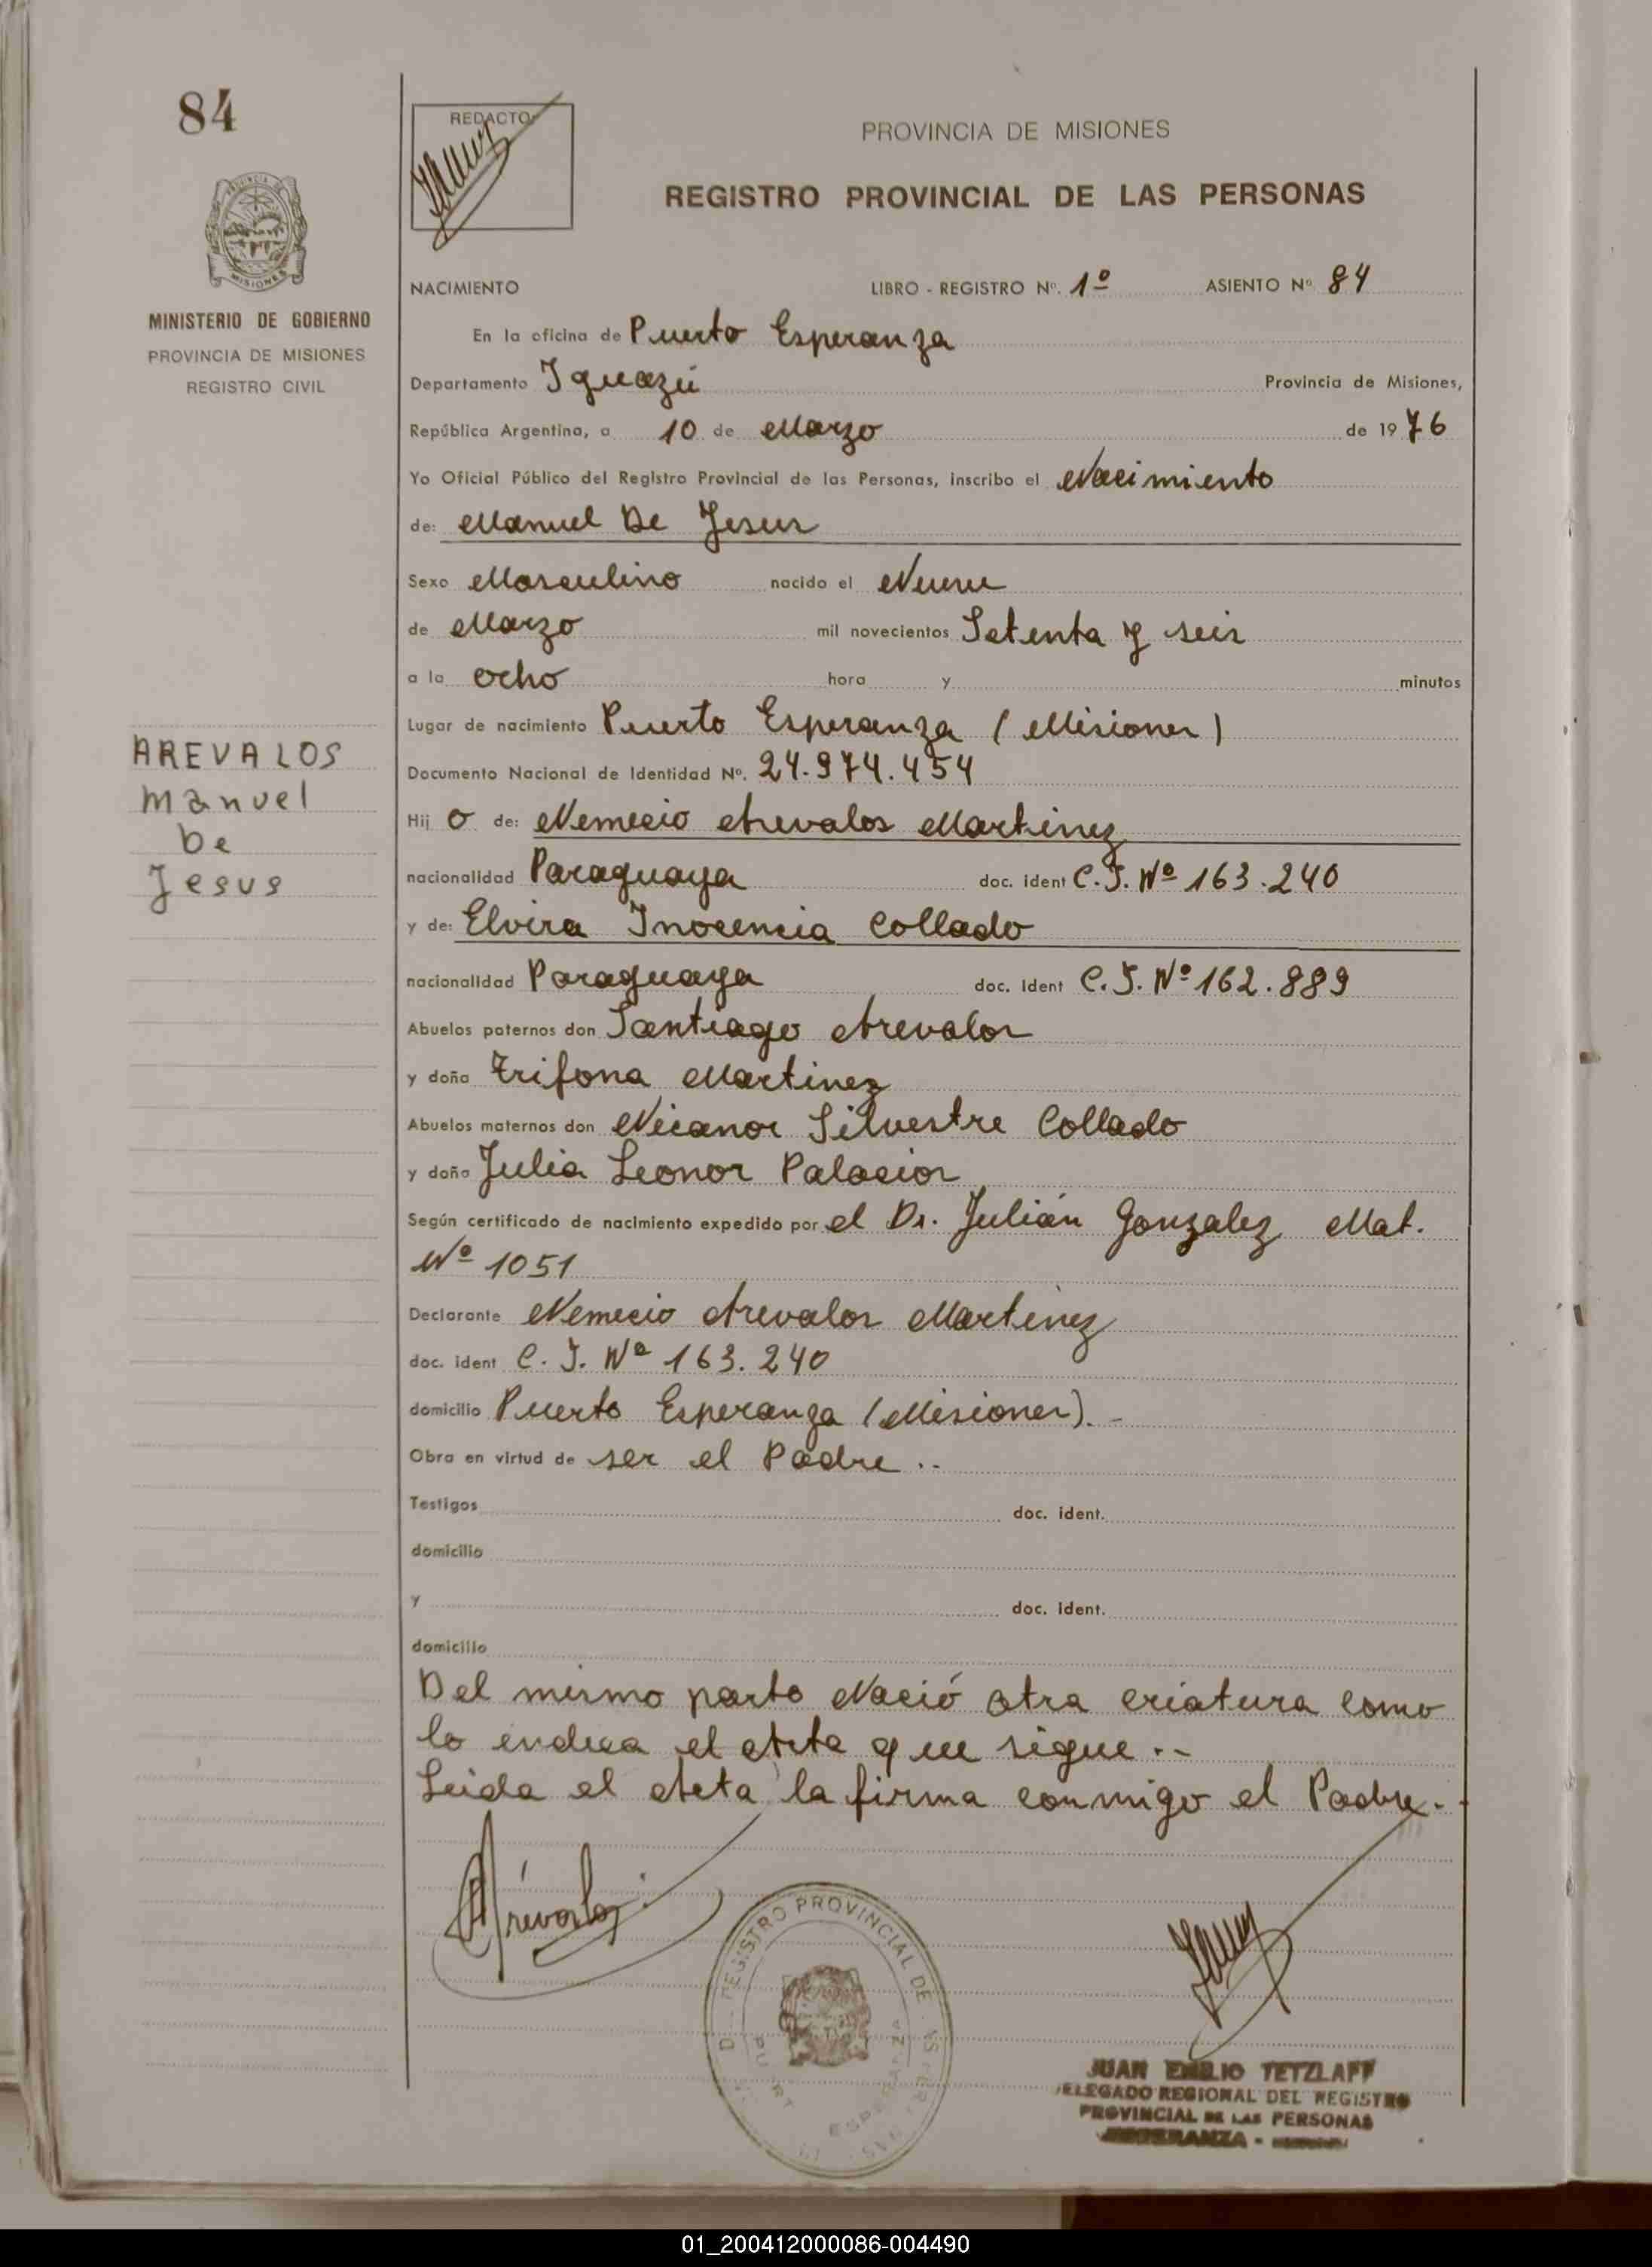 84
MINISTERIO DE GOBIERNO
PROVINCIA DE MISIONES
REGISTRO CIVIL
AREVALOS
Manuel
De
Jesus
REDACTO:
PROVINCIA DE MISIONES
REGISTRO PROVINCIAL DE LAS PERSONAS
NACIMIENTO LIBRO - REGISTRO Nº. 1º ASIENTO Nº 84
En la oficina de Puerto Esperanza
Departamento Iguazú Provincia de Misiones,
República Argentina, a 10 de Marzo de 1976
Yo Oficial Público del Registro Provincial de las Personas, inscribo el Nacimiento
de: Manuel De Jesus
Sexo Masculino nacido el Nueve
de Marzo mil novecientos Setenta y seis
a la ocho hora y minutos
Lugar de nacimiento Puerto Esperanza (Misiones)
Documento Nacional de Identidad Nº. 24.974.454
Hij o de: Nemecio Arevalos Martinez
nacionalidad Paraguaya doc. ident C.I. Nº 163.240
y de: Elvira Inocencia Collado
nacionalidad Paraguaya doc. ident C.I. Nº 162.889
Abuelos paternos don Santiago Arevalos
y doña Trifona Martinez
Abuelos maternos don Nicanor Silvestre Collado
y doña Julia Leonor Palacios
Según certificado de nacimiento expedido por el Dr. Julián Gonzalez Mat.
Nº 1051
Declarante Nemecio Arevalos Martinez
doc. ident C. I. Nº 163.240
domicilio Puerto Esperanza (Misiones).-
Obra en virtud de ser el Padre.-
Testigos doc. ident.
domicilio
y doc. ident.
domicilio
Del mismo parto Nació otra criatura como
lo indica el Acta que sigue.-
Leida el Acta la firma conmigo el Padre.-
Arévalos
REGISTRO PROVINCIAL DE
JUAN EMILIO TETZLAFF
DELEGADO REGIONAL DEL REGISTRO
PROVINCIAL DE LAS PERSONAS
ESPERANZA -
01_200412000086-004490